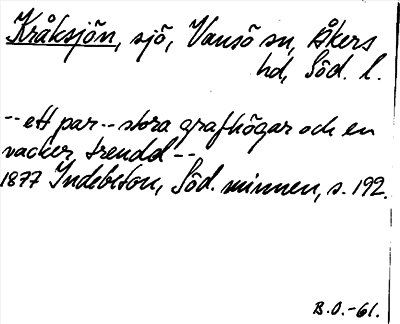 Kråksjön, sjö, Vansö sn, Åkers
hd, Söd. l.
-- ett par -- stora grafhögar och en
vacker trendd --
1877 Indebetou, Söd. minnen, s. 192.
B.O.-61.